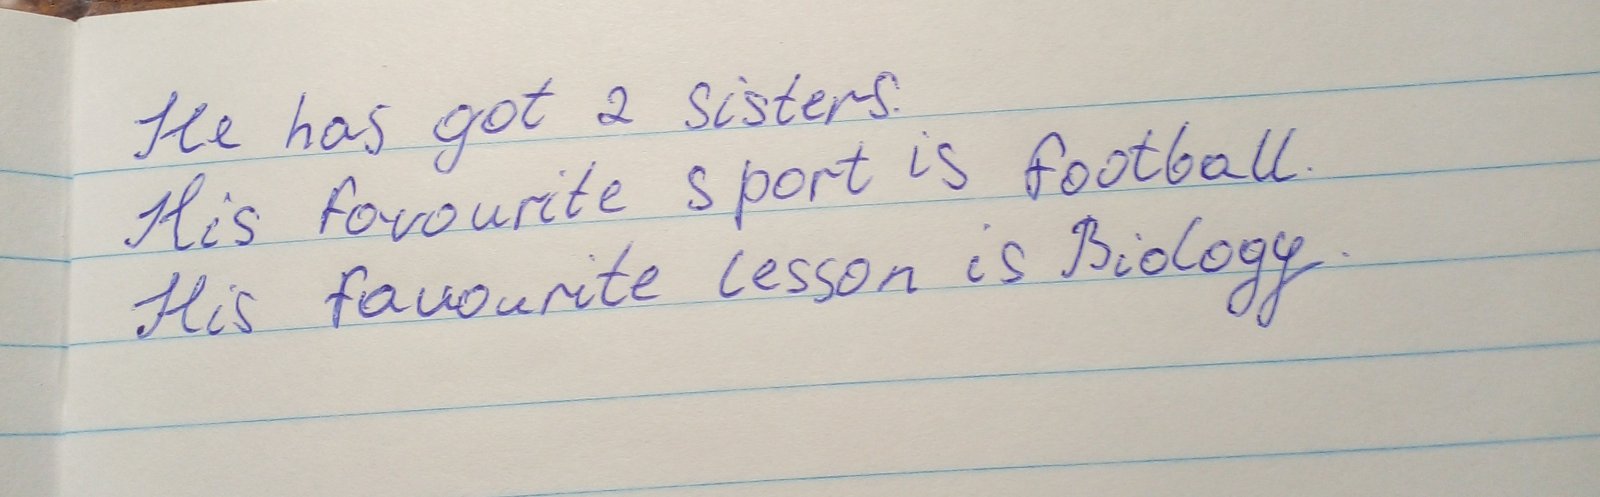 He has got 2 sisters.
His favourite sport is football.
His favourite lesson is Biology.